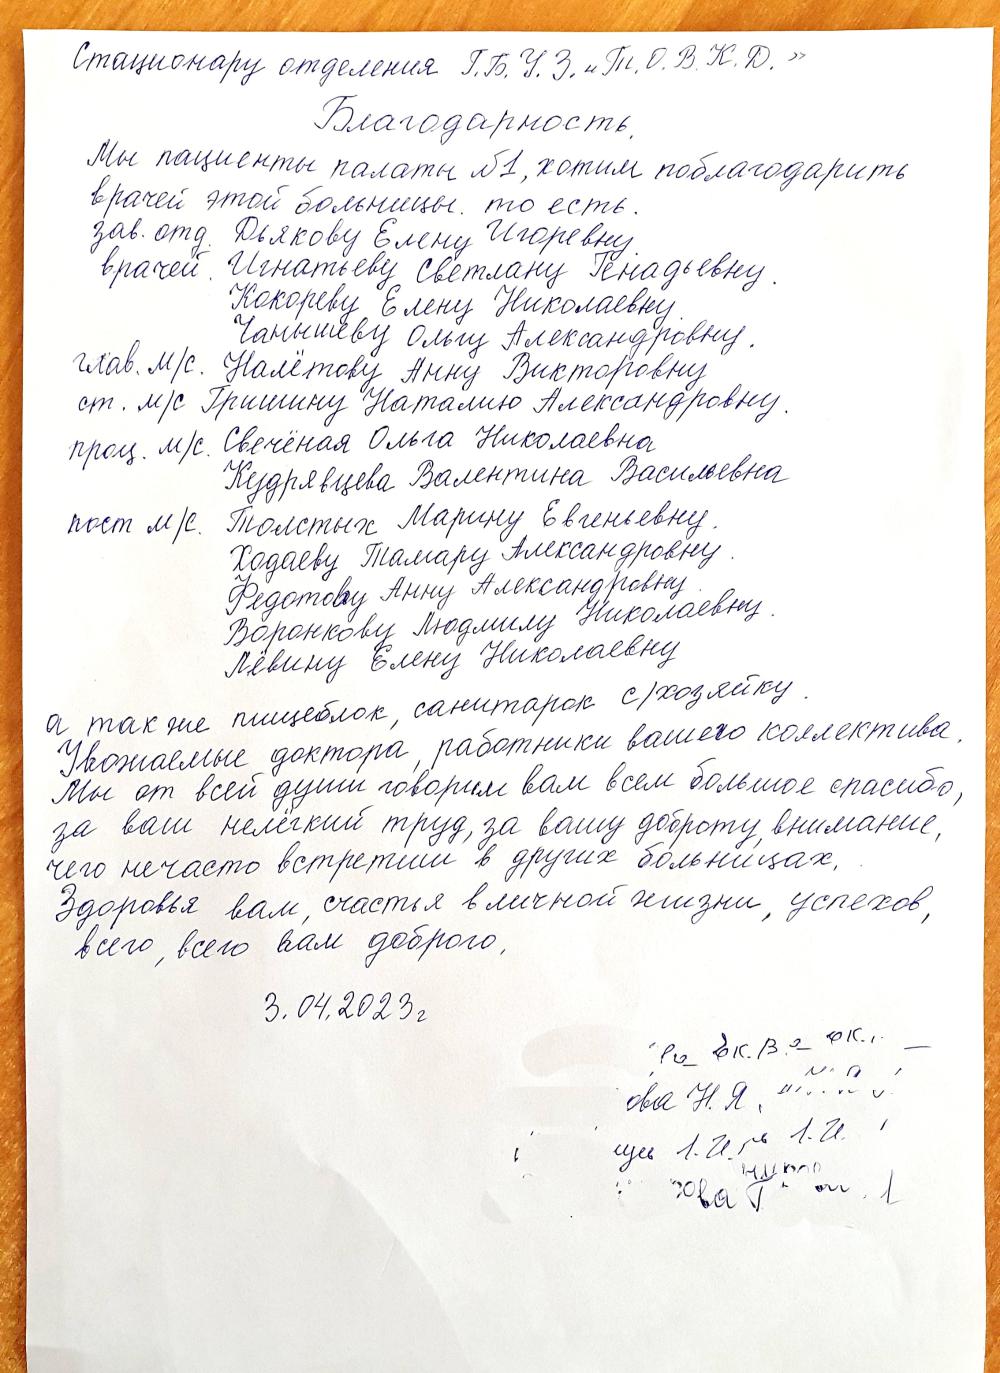 Стационару отделения Г.Б.У.З. „Т.О.В.К.Д."
Благодарность.
Мы пациенты палаты №1, хотим поблагодарить
врачей этой больницы. то есть.
зав. отд. Дьякову Елену Игоревну
врачей. Игнатьеву Светлану Генадьевну.
Кокореву Елену Николаевну.
Чанышеву Ольгу Александровну.
глав. м/с. Налётову Анну Викторовну
ст. м/с Гришину Наталию Александровну.
проц. м/с. Свечёная Ольга Николаевна
Кудрявцева Валентина Васильевна
пост м/с. Толстых Марину Евгеньевну.
Ходаеву Тамару Александровну.
Федотову Анну Александровну.
Воронкову Людмилу Николаевну.
Лёвину Елену Николаевну
а так же пищеблок, санитарок с/хозяйку.
Уважаемые доктора, работники вашего коллектива.
Мы от всей души говорим вам всем большое спасибо,
за ваш нелёгкий труд, за вашу доброту, внимание,
чего нечасто встретиш в других больницах.
Здоровья вам, счастья в личной жизни, успехов,
всего, всего вам доброго.
3.04.2023г
ова Н.Я.